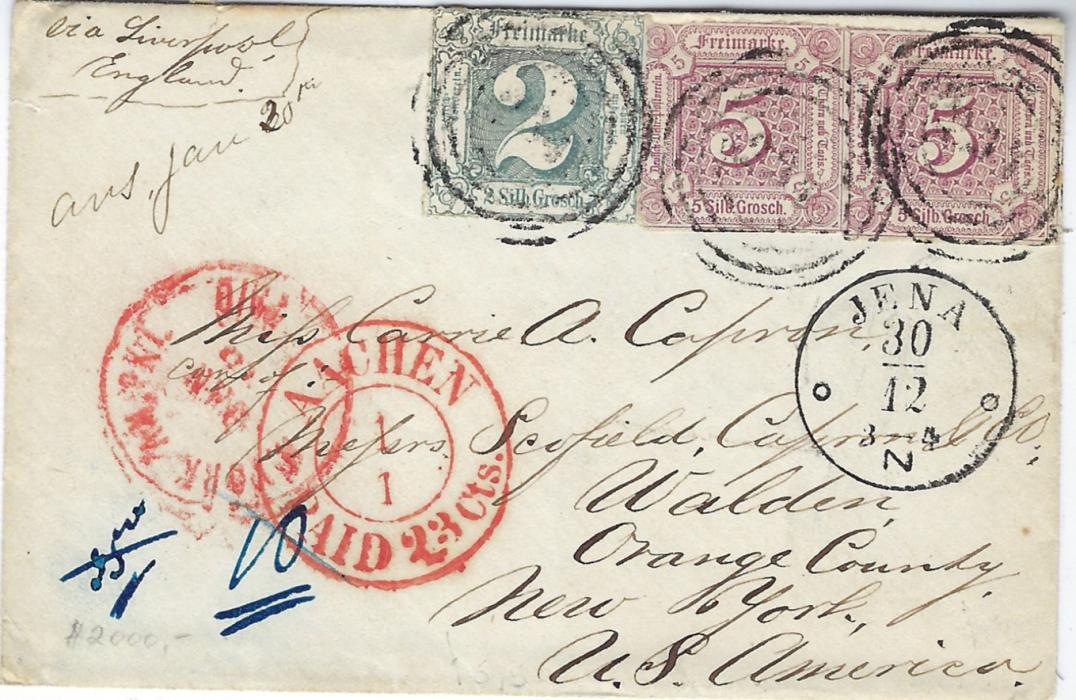 via Liverpool
England.
ans, Jan 20
Freimarke
2
2 Silb. Grosch.
Freimarke.
5
5 Silb. Grosch.
Freimarke.
5
5 Silb. Grosch.
JENA
30
12
3 4
N
AACHEN
1
1
PAID 23 Cts.
Miss Carrie A. Capron,
care of
Messrs Scofield, Capron & Co,
Walden,
Orange County,
New York,
U.S. America.
10
2000,-